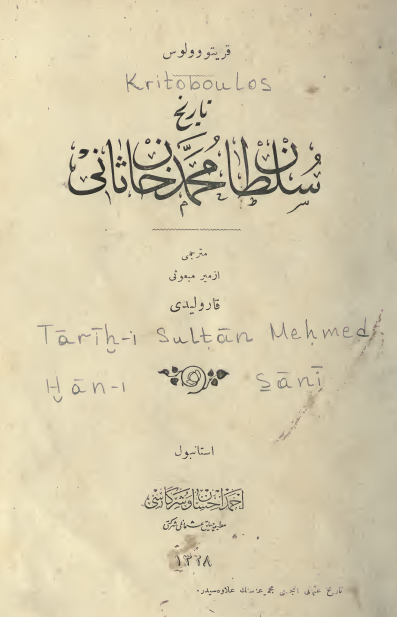 قریتوولوس
Kritoboulos
تاریخ
سلطان محمد خان ثانی
مترجمی
ازمیر مبعوثی
قارولیدی
Tārīḫ-i Sulṭān Meḥmed
Ḫān-ı S̱ānī
استانبول
احمد احسان وشرکاسی
مطبعه‌جیلق عثمانلی شرکتی
١٣٢٨
تاریخ عثمانی انجمنی مجموعه‌سنك علاوه‌سیدر.